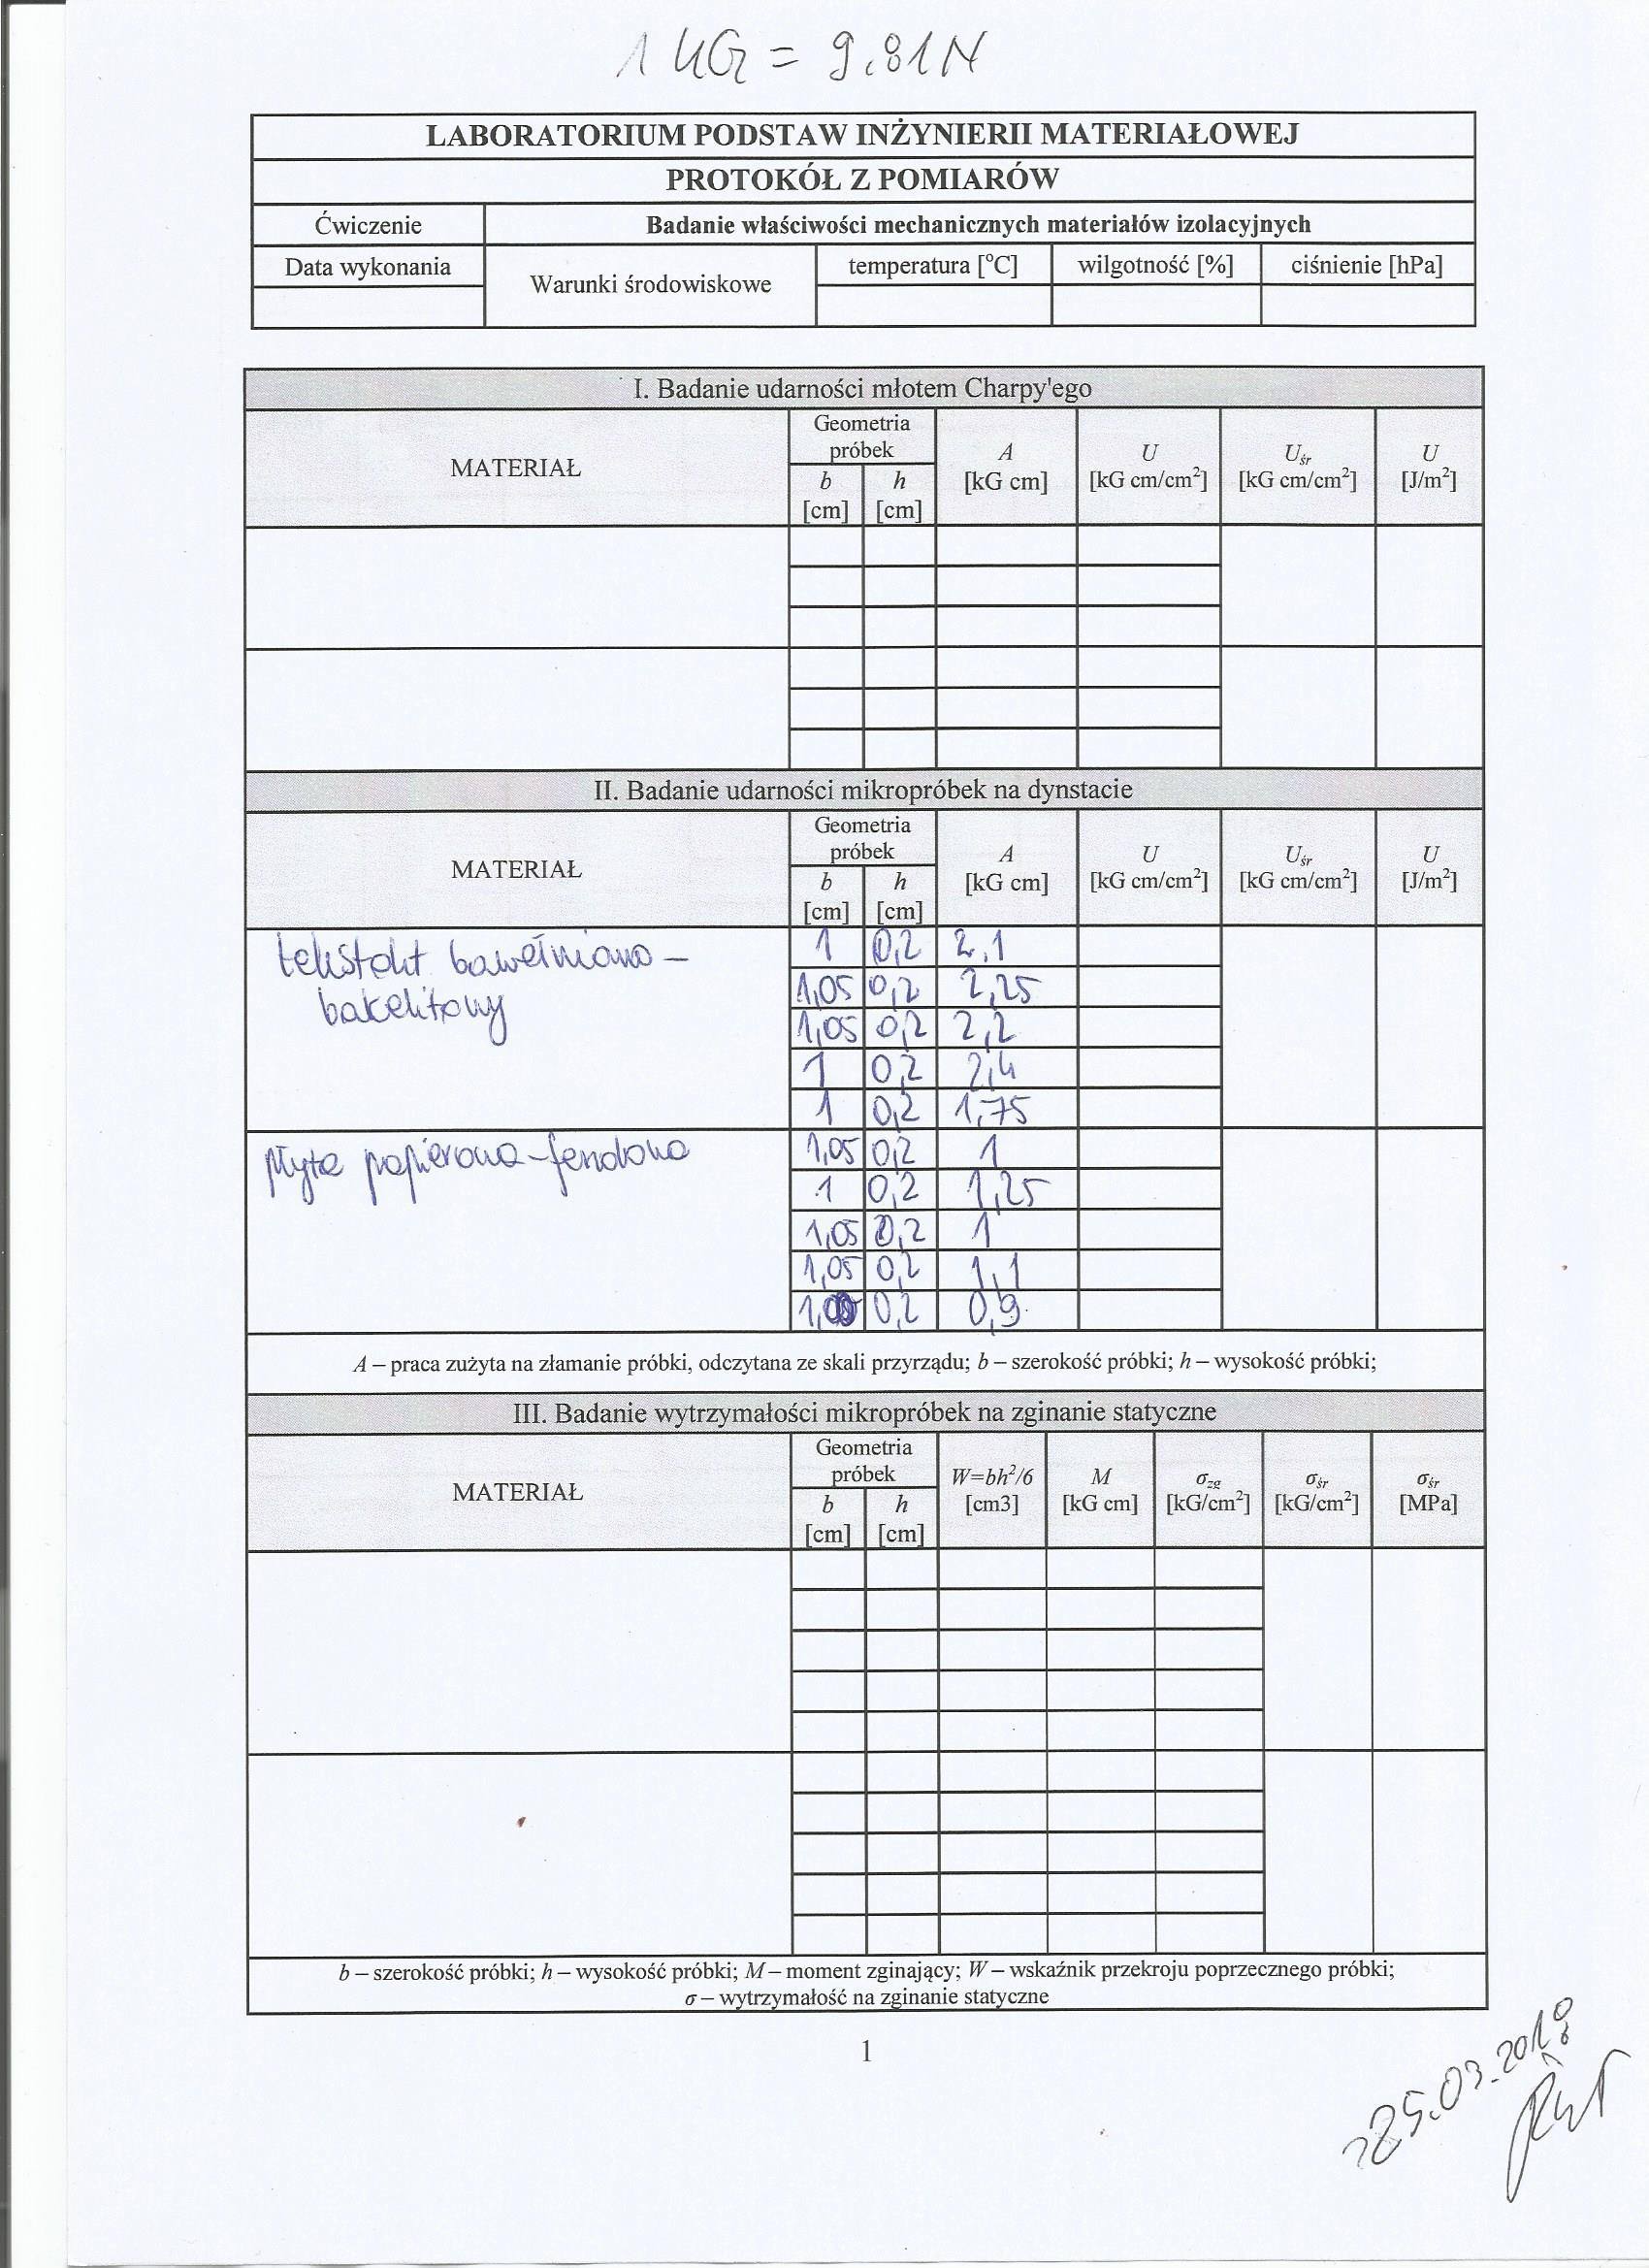 1 kG = 9.81N
LABORATORIUM PODSTAW INŻYNIERII MATERIAŁOWEJ
PROTOKÓŁ Z POMIARÓW
Ćwiczenie Badanie właściwości mechanicznych materiałów izolacyjnych
Data wykonania Warunki środowiskowe temperatura [°C] wilgotność [%] ciśnienie [hPa]
I. Badanie udarności młotem Charpy'ego
MATERIAŁ Geometria próbek b [cm] h [cm] A [kG cm] U [kG cm/cm²] Uśr [kG cm/cm²] U [J/m²]
II. Badanie udarności mikropróbek na dynstacie
MATERIAŁ Geometria próbek b [cm] h [cm] A [kG cm] U [kG cm/cm²] Uśr [kG cm/cm²] U [J/m²]
tekstolit bawełniano –
bakelitowy
1 0,2 2,1
1,05 0,2 2,25
1,05 0,2 2,2
1 0,2 2,4
1 0,2 1,75
płyta papierowa-fenolowa
1,05 0,2 1
1 0,2 1,25
1,05 0,2 1
1,05 0,2 1,1
1,00 0,2 0,9
A – praca zużyta na złamanie próbki, odczytana ze skali przyrządu; b – szerokość próbki; h – wysokość próbki;
III. Badanie wytrzymałości mikropróbek na zginanie statyczne
MATERIAŁ Geometria próbek b [cm] h [cm] W=bh²/6 [cm3] M [kG cm] σzg [kG/cm²] σśr [kG/cm²] σśr [MPa]
b – szerokość próbki; h – wysokość próbki; M – moment zginający; W – wskaźnik przekroju poprzecznego próbki;
σ – wytrzymałość na zginanie statyczne
1
25.03.2018